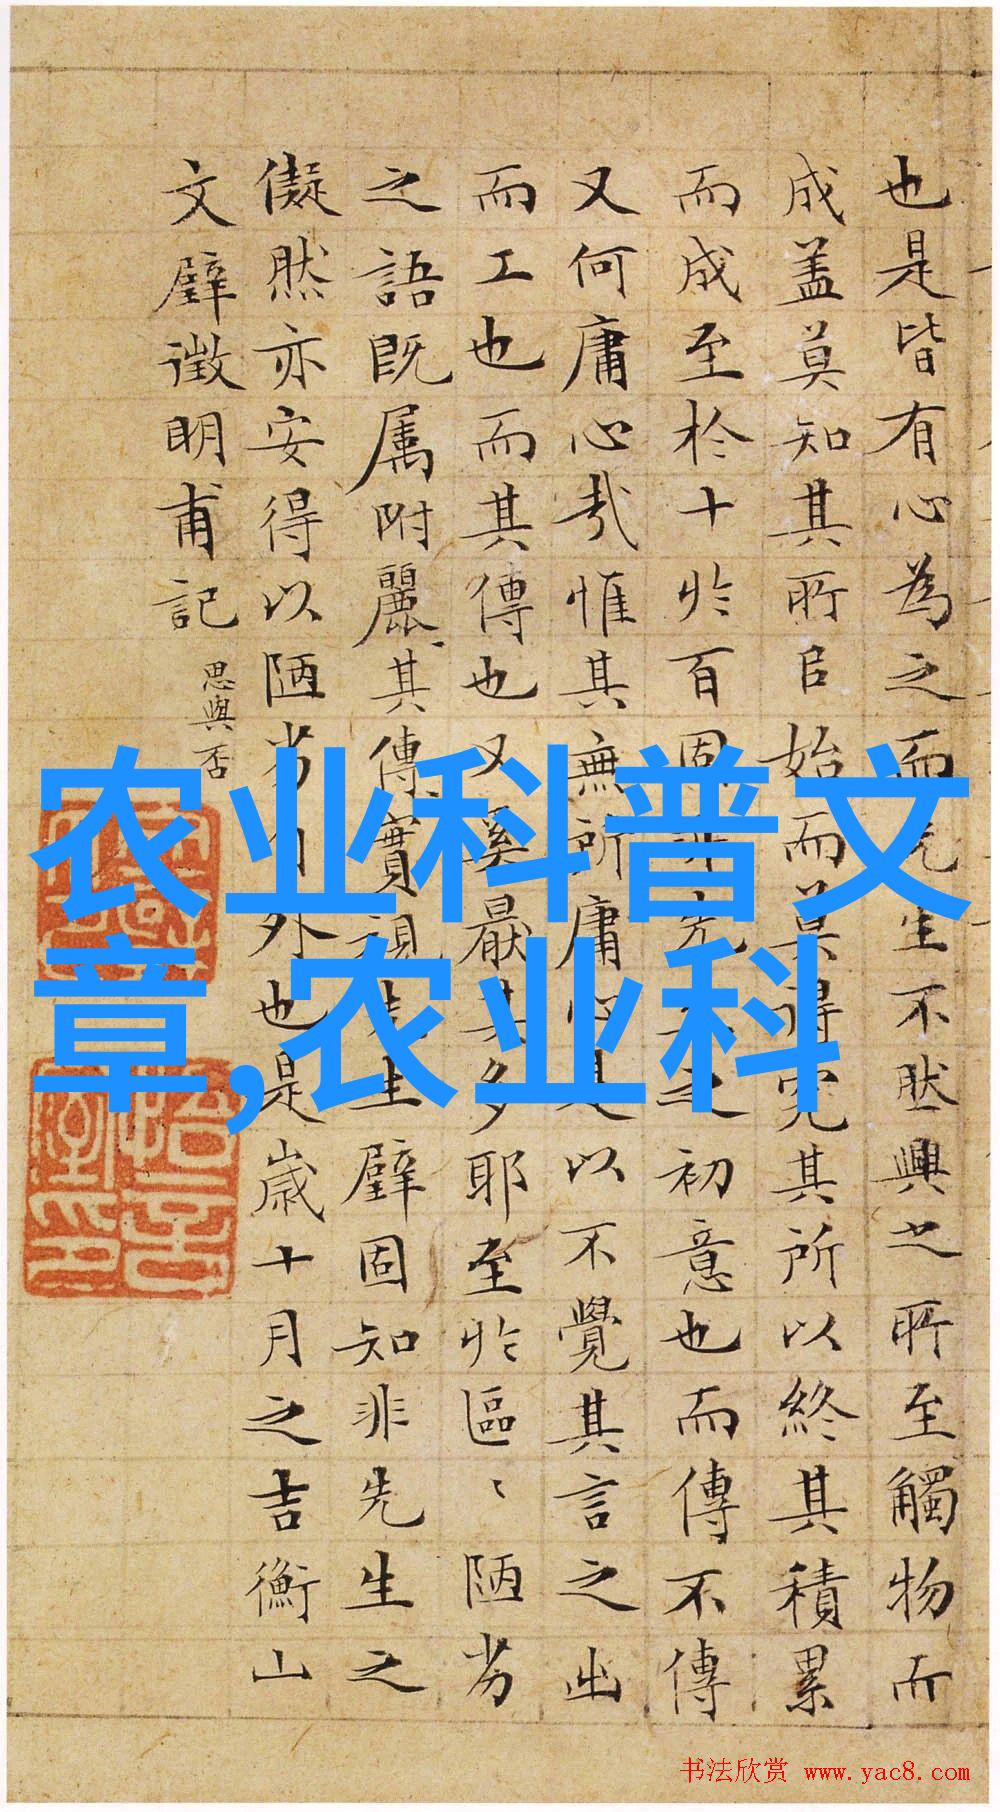 也是皆有心為之而先生不然興之所至觸物而
成盖莫知其所自始而莫得究其所以終其積累
而成至於十於百固非先生之初意也而傳不傳
又何庸心哉惟其無所庸心是以不覺其言之出
而工也而其傳也又奚厭其多耶至於區〻陋劣
之語既属附麗其傳實視先生璧固知非先生之
儗然亦安得以陋劣自外也是歲十月之吉衡山
文璧徵明甫記 思與否
农业科普文
章,农业科
书法欣赏 www.yac8.com